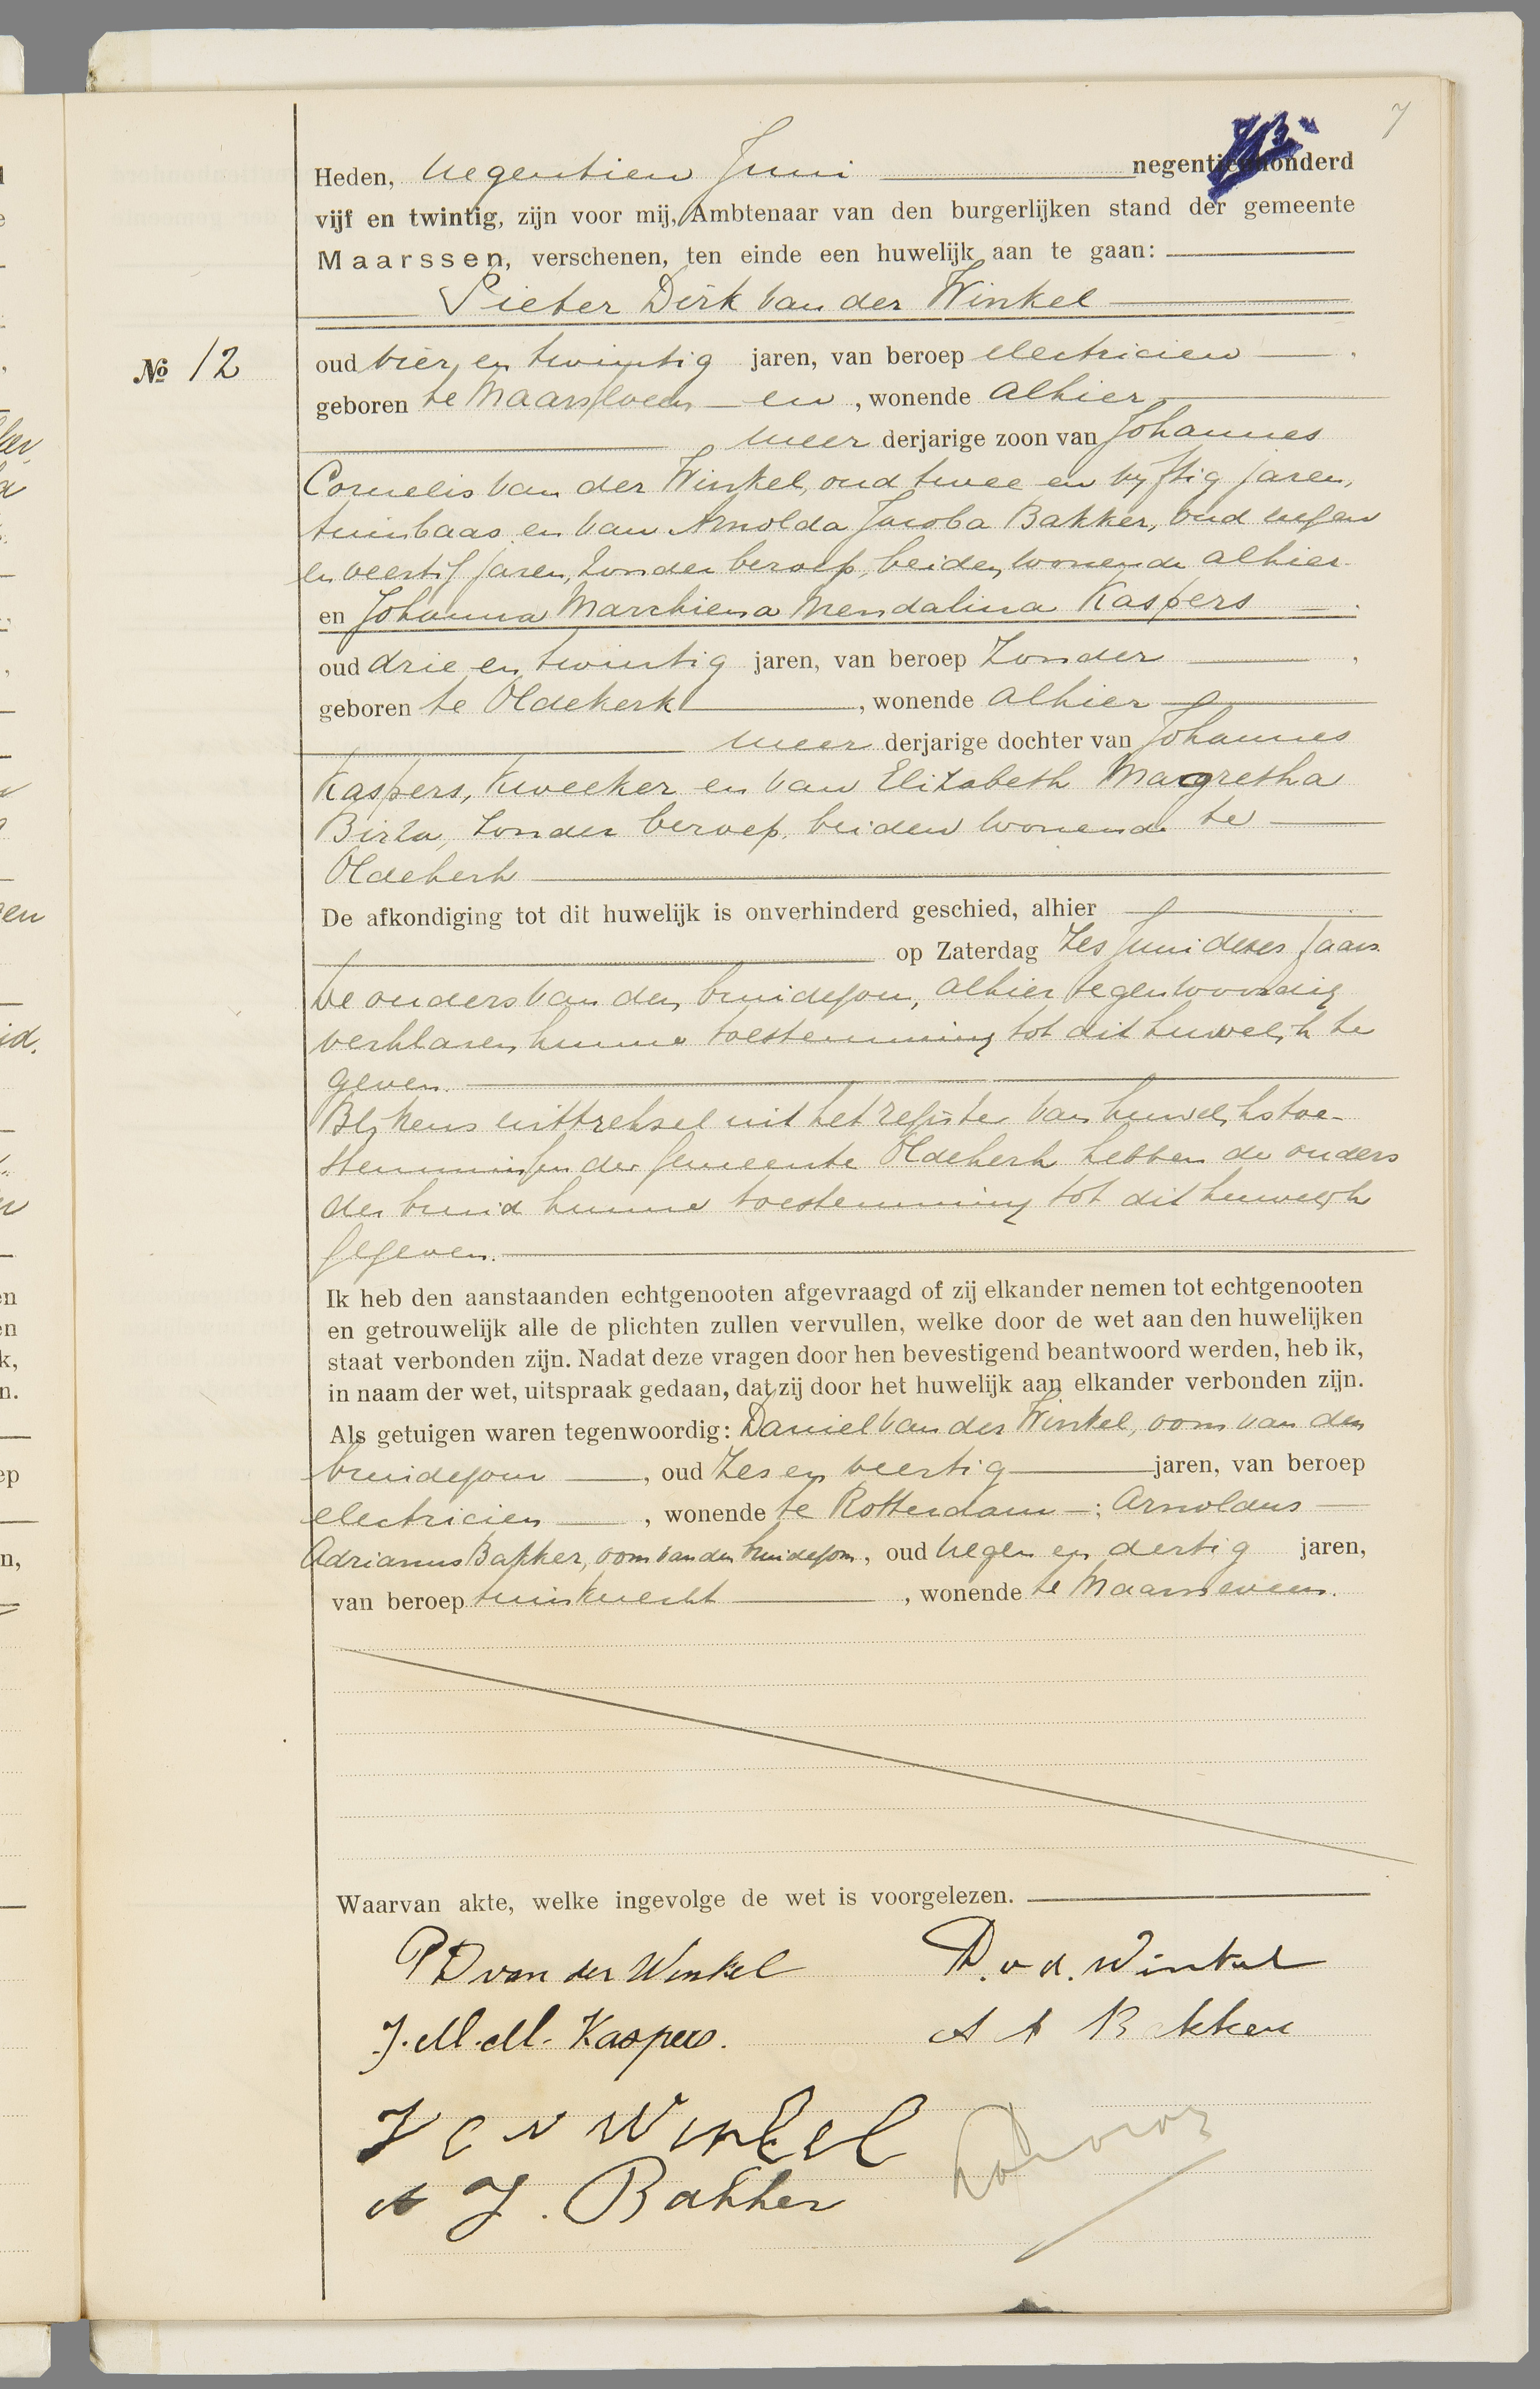 7
Heden, negentien Juni negentienhonderd
vijf en twintig, zijn voor mij, Ambtenaar van den burgerlijken stand der gemeente
Maarssen, verschenen, ten einde een huwelijk aan te gaan:
Pieter Dirk van der Winkel
No 12
oud vier en twintig jaren, van beroep electricien,
geboren te Maarsseveen en, wonende alhier
meer derjarige zoon van Johannes
Cornelis van der Winkel, oud twee en vijftig jaren,
tuinbaas en van Arnolda Jacoba Bakker, oud negen
en veertig jaren, zonder beroep, beiden wonende alhier
en Johanna Marchiena Mendalina Kaspers
oud drie en twintig jaren, van beroep zonder,
geboren te Oldekerk, wonende alhier
meer derjarige dochter van Johannes
Kaspers, kweeker en van Elizabeth Magretha
Birza, zonder beroep, beiden wonende te
Oldekerk
De afkondiging tot dit huwelijk is onverhinderd geschied, alhier
op Zaterdag zes Juni dezes jaars.
De ouders van den bruidegom, alhier tegenwoordig
verklaren hunne toestemming tot dit huwelijk te
geven.
Blijkens uittreksel uit het register van huwelijkstoe-
stemmingen der gemeente Oldekerk hebben de ouders
der bruid hunne toestemming tot dit huwelijk
gegeven.
Ik heb den aanstaanden echtgenooten afgevraagd of zij elkander nemen tot echtgenooten
en getrouwelijk alle de plichten zullen vervullen, welke door de wet aan den huwelijken
staat verbonden zijn. Nadat deze vragen door hen bevestigend beantwoord werden, heb ik,
in naam der wet, uitspraak gedaan, dat zij door het huwelijk aan elkander verbonden zijn.
Als getuigen waren tegenwoordig: Daniel van der Winkel, oom van den
bruidegom, oud zes en veertig jaren, van beroep
electricien, wonende te Rotterdam; Arnoldus
Adrianus Bakker, oom van den bruidegom, oud negen en dertig jaren,
van beroep tuinknecht, wonende te Maarsseveen.
Waarvan akte, welke ingevolge de wet is voorgelezen.
P D van der Winkel D. v. d. Winkel
J. M. M. Kaspers. A A Bakker
J C v Winkel
A J. Bakker